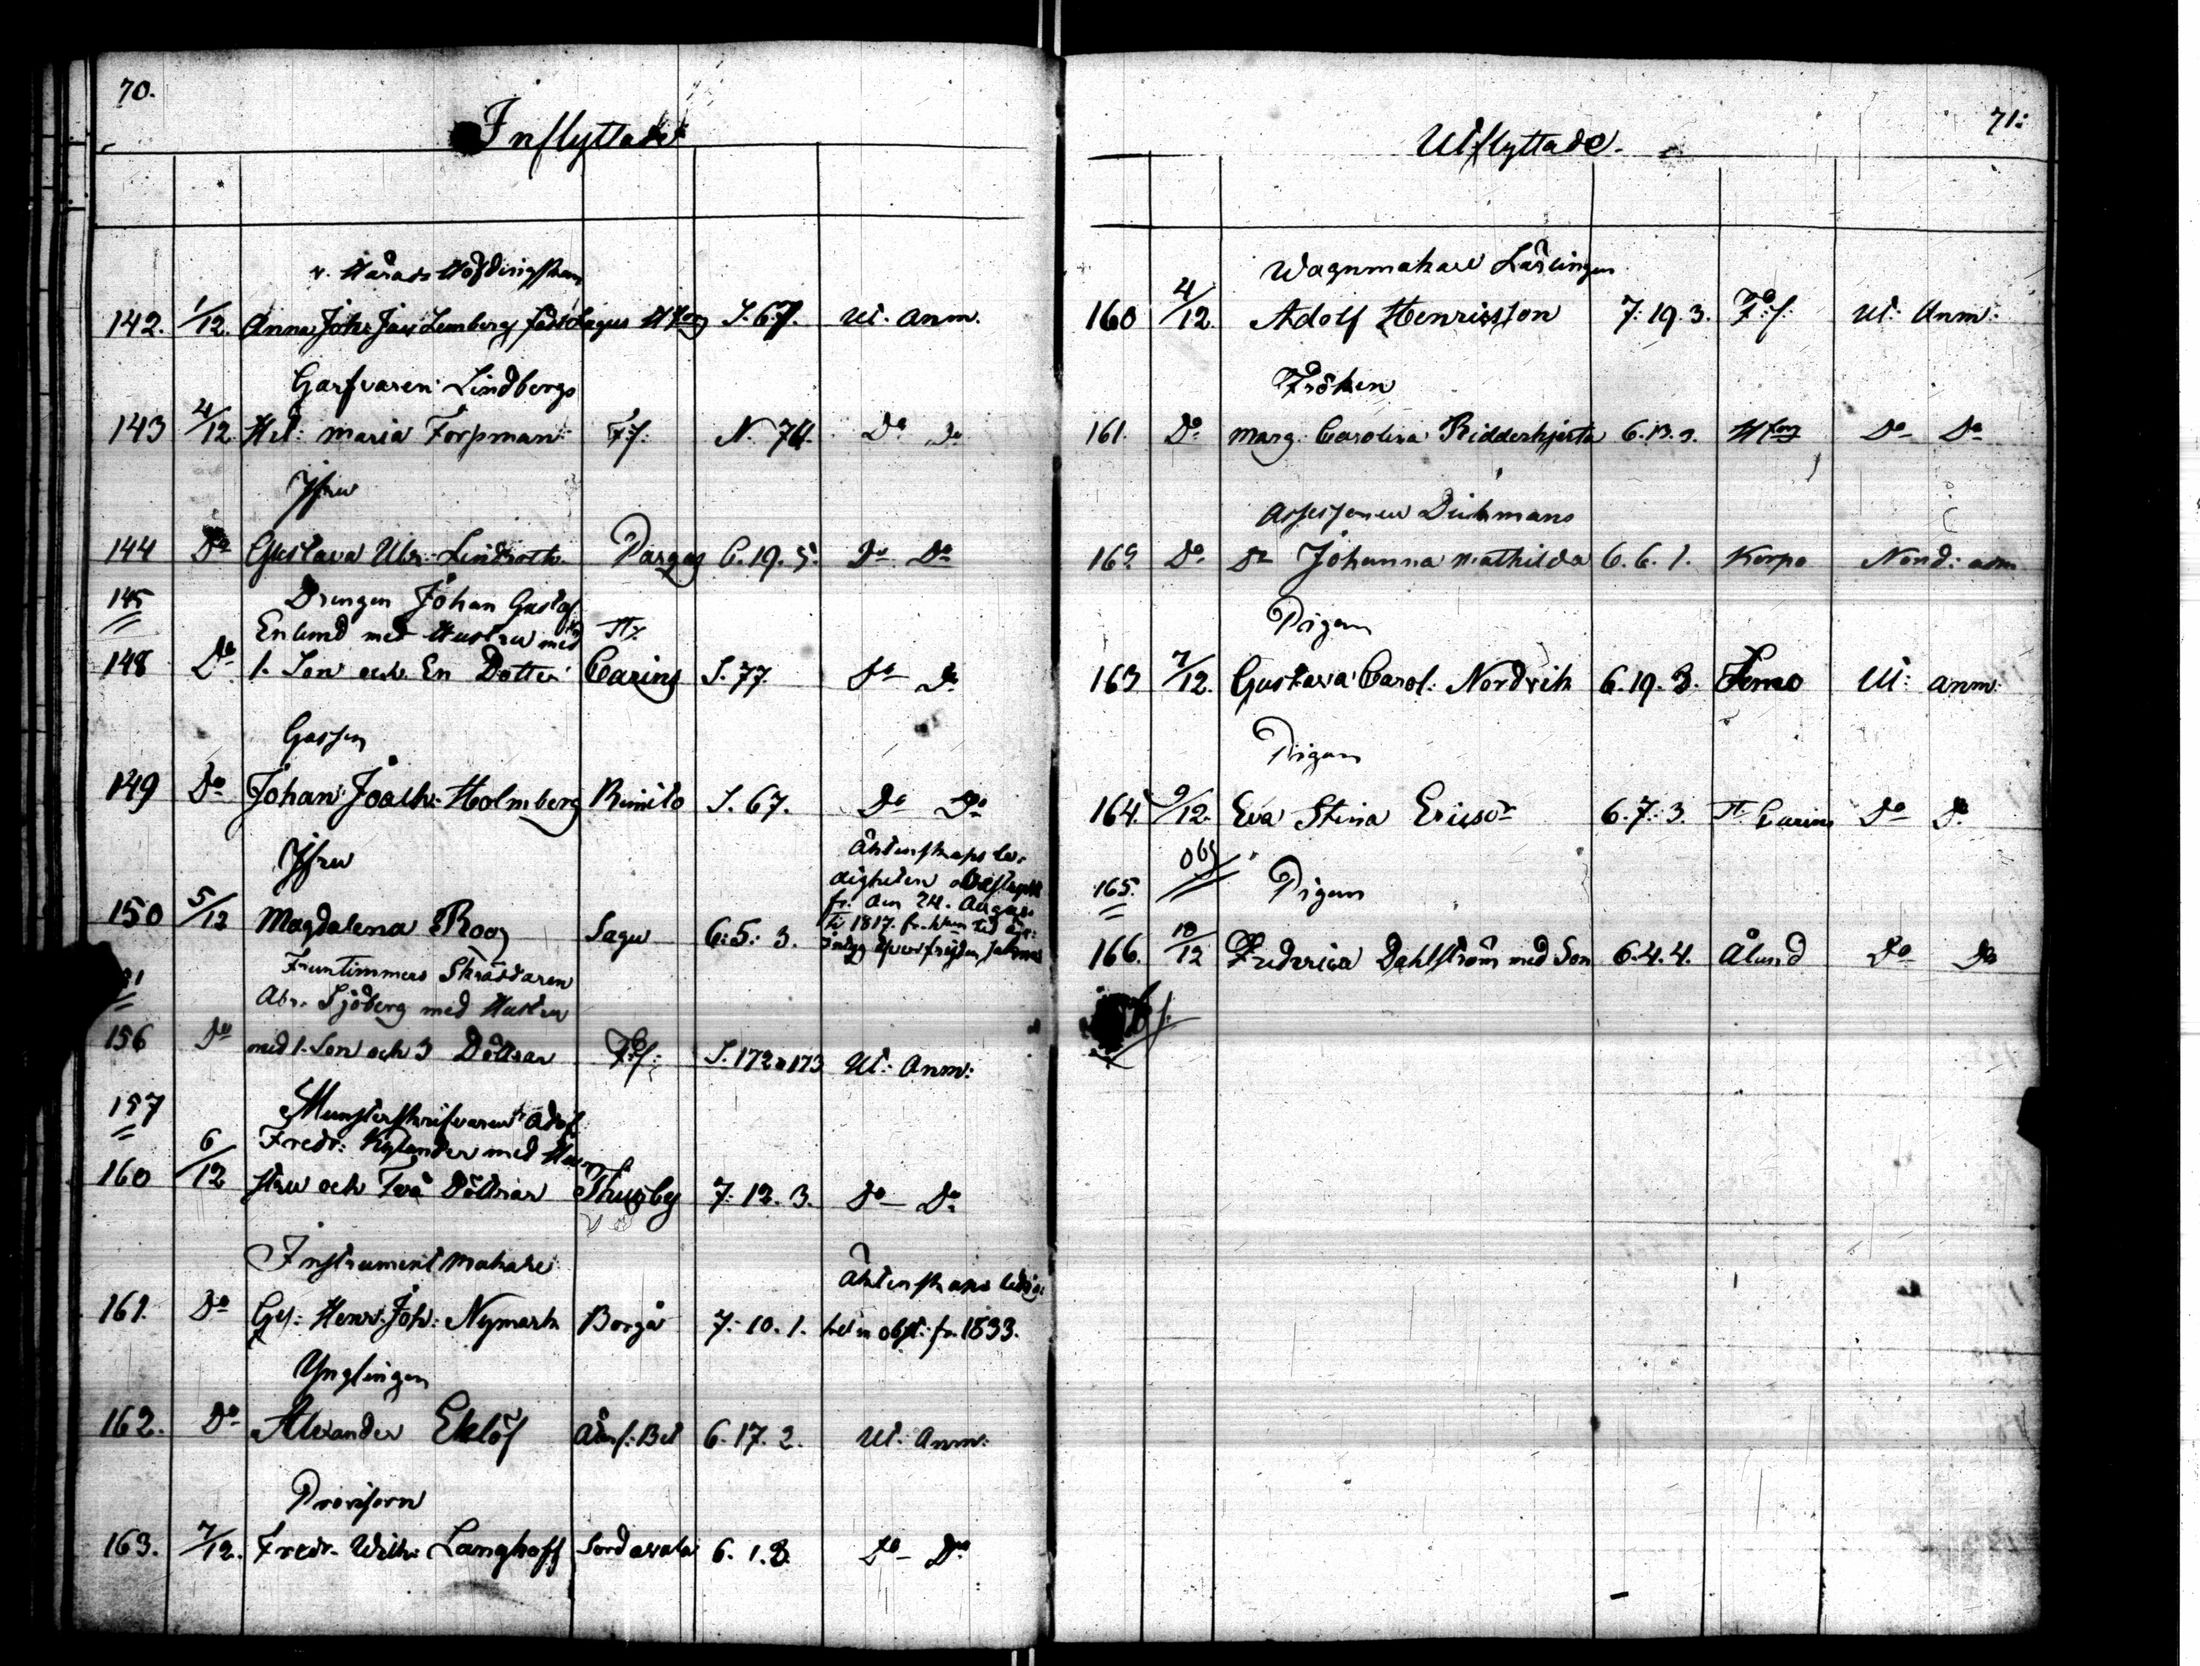 70.
Inflyttade
v. Härads Höfdingskan
142. 1/12. Anna Joh: Jac Lemberg född Lagus Hfors S. 67. Ut. Anm.
Garfvaren Lindbergs
143 4/12 Hel: Maria Forsman F:f. N. 74. Do Do
Jfru
144 Do Gustava Ulr: Lindroth Pargas 6. 19. 5. Do Do
145 Drengen Johan Gustaf
Enlund med Hustru med St
148 Do 1. Son och En Dotter Carins S. 77. Do Do
Gossen
149 Do Johan Joach: Holmberg Rimito S. 67. Do Do
Jfru
150 5/12 Magdalena Roos Sagu 6: 5: 3.
Äktenskaps le-
digheten obestyrkt
fr. den 24. Augus-
ti 1817.
Fruntimmers Skräddaren
Abr. Sjöberg med Hustru
156 Do med 1. Son och 3 Döttrar F:f: S. 172 o 173 Ut: Anm:
157 Munsterskrifvaren Adolf
Fredr: Nylander med Hu-
160 6/12 stru och Två Döttrar Thusby 7: 12. 3. Do Do
Instrument Makare
Äktenskaps ledig-
161. Do Ges: Henr: Joh: Nymark Borgå 7: 10. 1. heten obst: fr. 1833.
Ynglingen
162. Do Alexander Eklöf 6. 17. 2. Ut. Anm:
Provisorn
163. 7/12. Fredr. Wilh: Langhoff Sordavala 6. 1. 3. Do Do
71:
Utflyttade.
Wagnmakare Lärlingen
160 4/12 Adolf Henriksson 7: 19. 3. F:f: Ut: Anm:
Fröken
161. Do Marg. Carolina Ridderhjerta 6. 13. 2. Hfors Do Do
Assessoren Dickmans
162 Do Dr Johanna Mathilda 6. 6. 1. Korpo Nord: anm
Pigan
163 7/12. Gustava Carol: Nordvik 6. 19. 3. Lemo Ut: Anm:
Pigan
164. 9/12. Eva Stina Ericsdr 6. 7. 3. St Carins Do Do
obs
165. Pigan
166. 10/12 Frederica Dahlström med Son 6. 4. 4. Åland Do Do